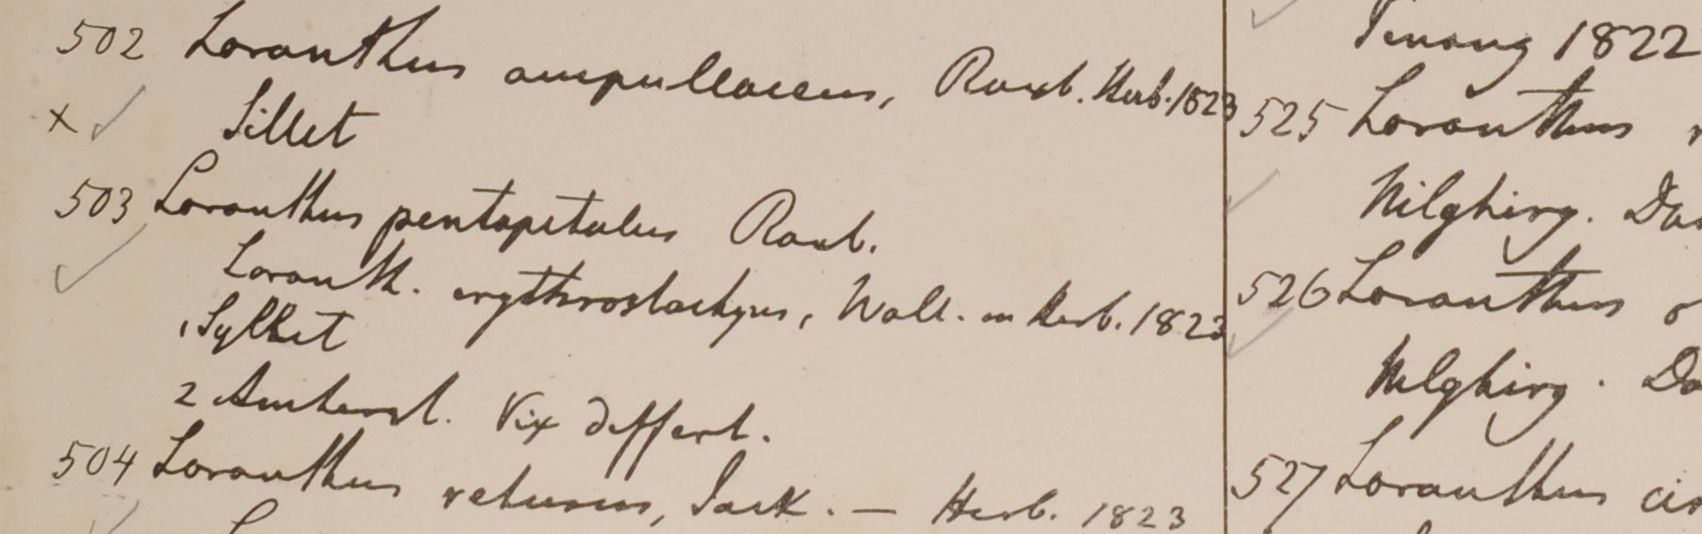 502 Loranthus ampullaceus, Roxb. Herb. 1823
x ✓ Sillet
503 Loranthus pentapetalus Roxb.
Loranth. erythrostachyus, Wall. in Herb. 1823
1 Sylhet
2 Amherst. Vix differt.
504 Loranthus retusus, Jack. — Herb. 1823
Penang 1822
525 Loranthus
Nilghiry.
526 Loranthus
Nilghiry.
527 Loranthus